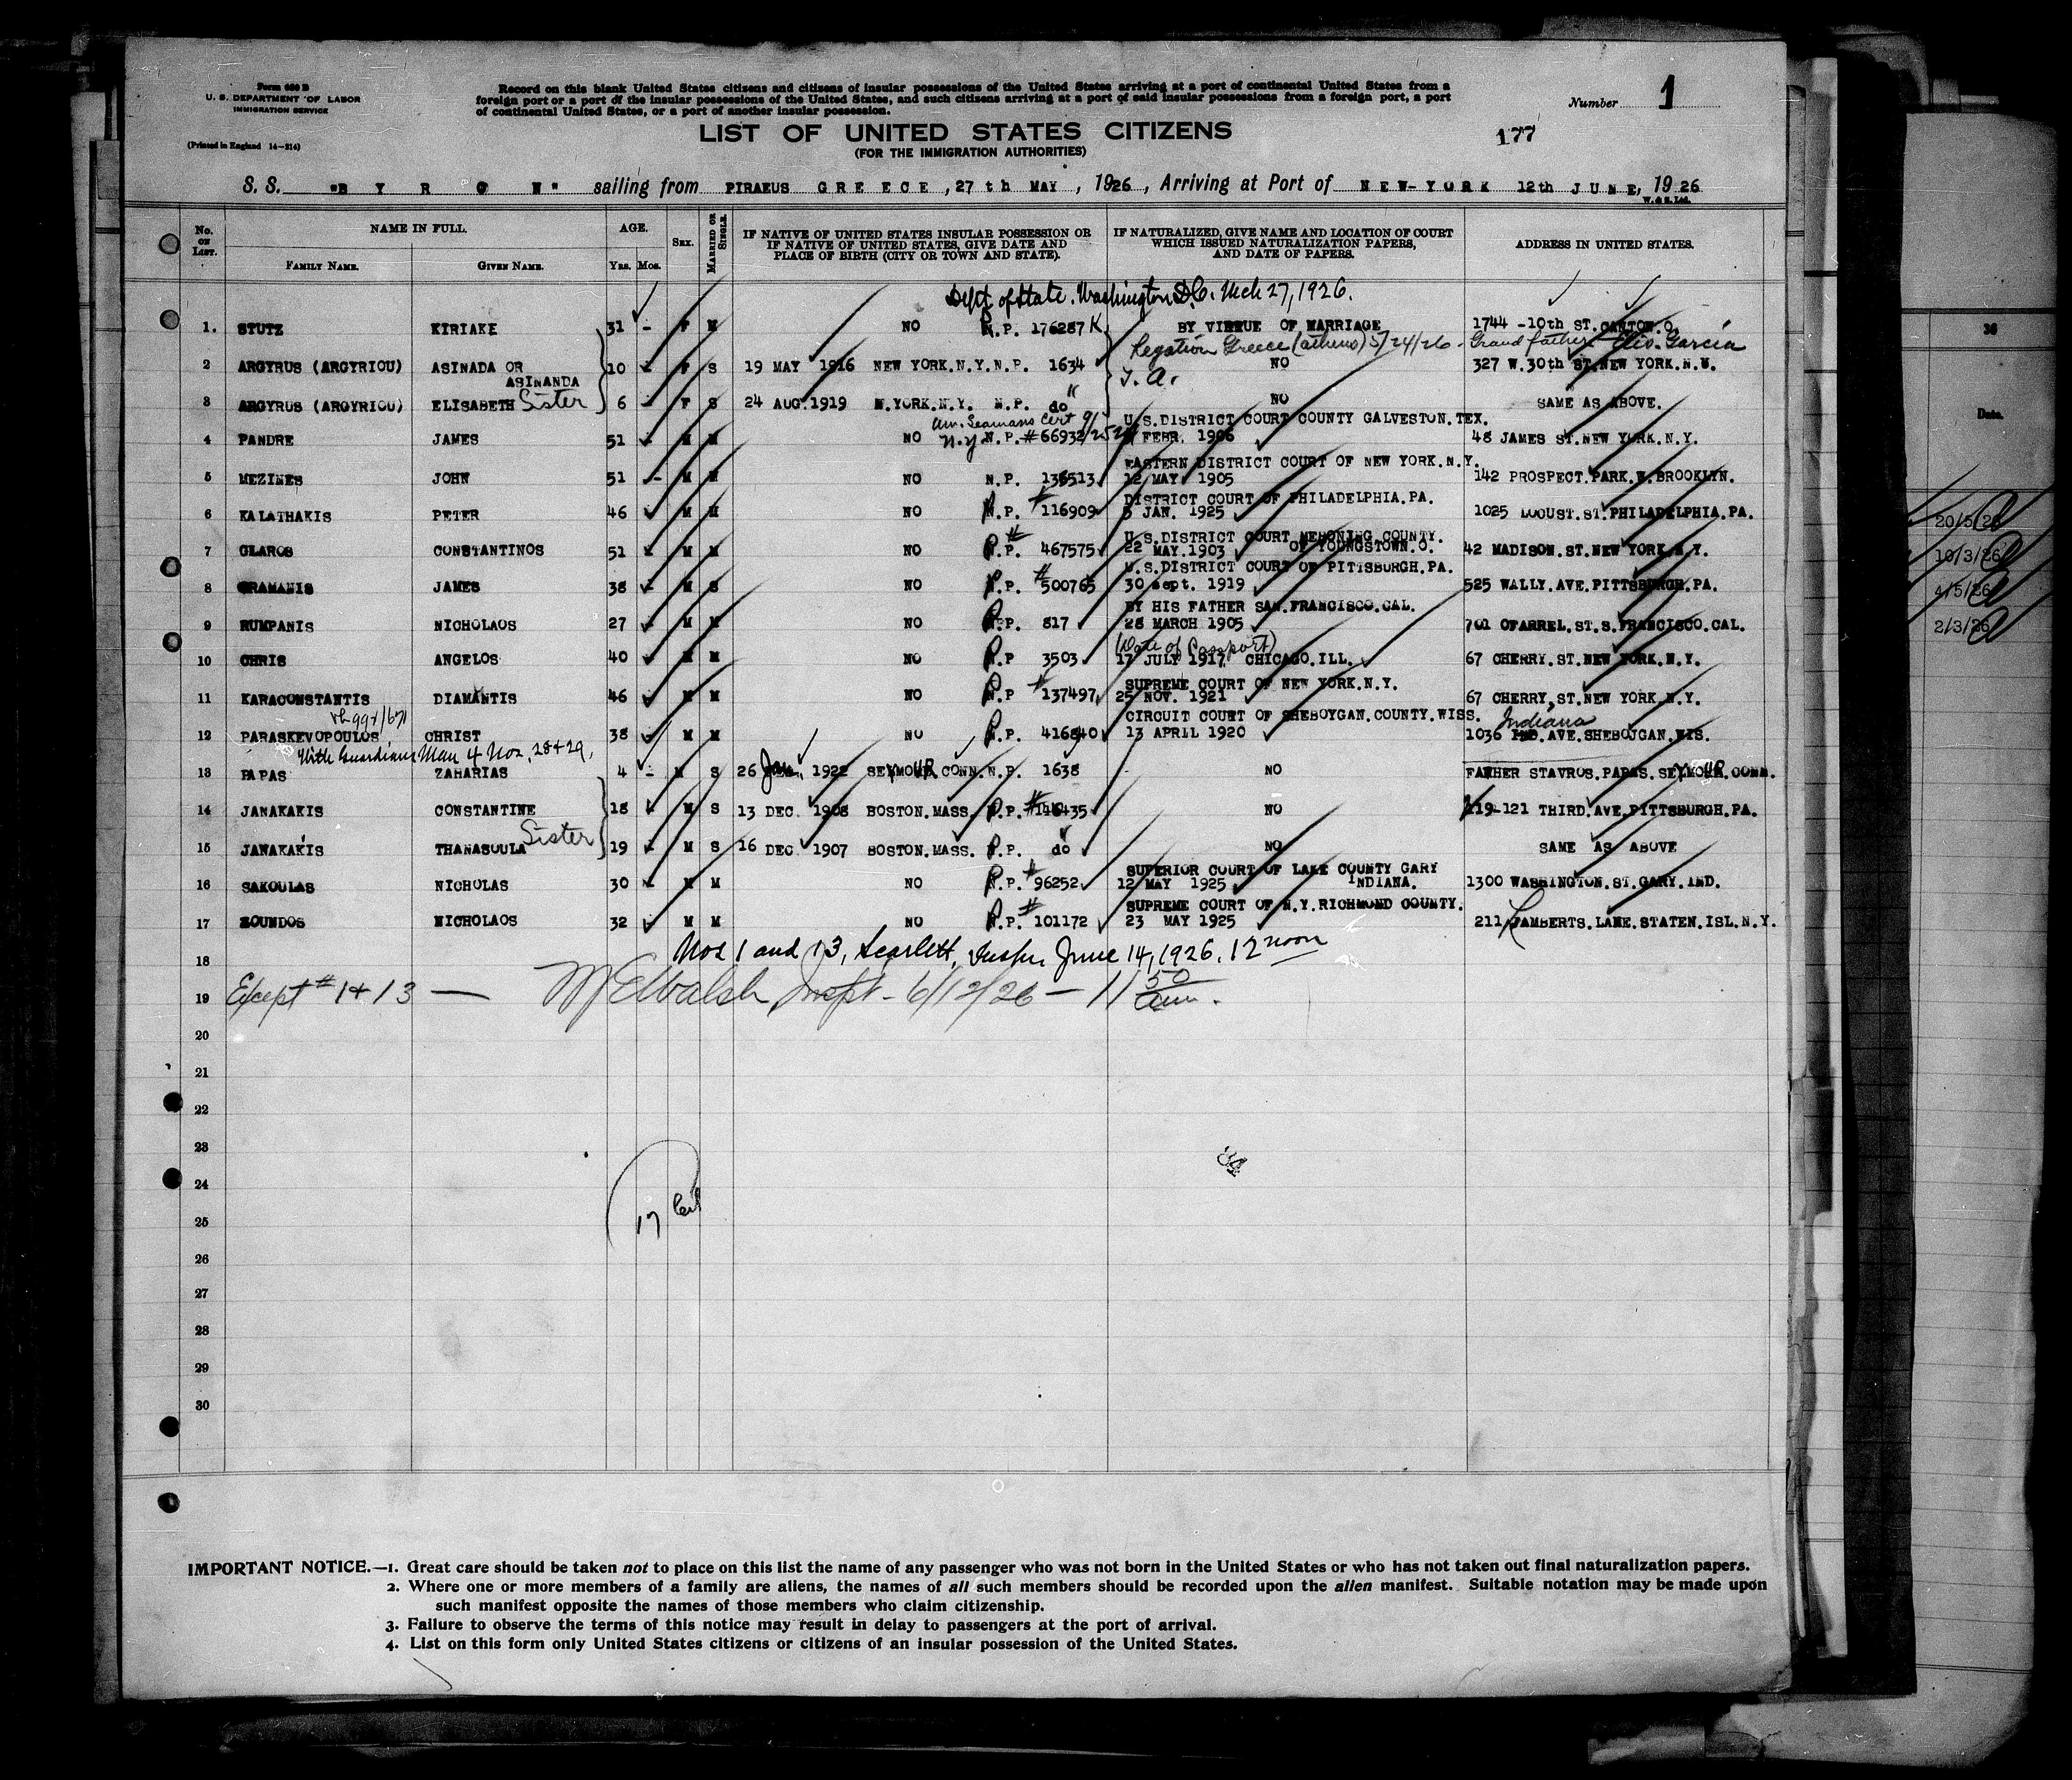 Form 630 B
U. S. DEPARTMENT OF LABOR
IMMIGRATION SERVICE
(Printed in England 14—214)
Record on this blank United States citizens and citizens of insular possessions of the United States arriving at a port of continental United States from a
foreign port or a port of the insular possessions of the United States, and such citizens arriving at a port of said insular possessions from a foreign port, a port
of continental United States, or a port of another insular possession.
Number 1
LIST OF UNITED STATES CITIZENS
(FOR THE IMMIGRATION AUTHORITIES)
177
S. S. "B Y R O N" sailing from PIRAEUS G R E E C E, 27 th MAY, 1926, Arriving at Port of N E W - Y O R K 12th J U N E, 19 26
W. & S. Ltd.
No. ON LIST. NAME IN FULL. AGE. SEX. MARRIED OR SINGLE. IF NATIVE OF UNITED STATES INSULAR POSSESSION OR IF NATIVE OF UNITED STATES, GIVE DATE AND PLACE OF BIRTH (CITY OR TOWN AND STATE). IF NATURALIZED, GIVE NAME AND LOCATION OF COURT WHICH ISSUED NATURALIZATION PAPERS, AND DATE OF PAPERS. ADDRESS IN UNITED STATES.
FAMILY NAME. GIVEN NAME. YRS. MOS.
Dept of State. Washington D.C. Mch 27, 1926.
1. STUTZ KIRIAKE 31 - F M NO N.P. 176287 BY VIRTUE OF MARRIAGE 1744 -10th ST. CANTON.O.
Legation Greece (Athens) 5/24/26 - Grand father
2 ARGYRUS (ARGYRIOU) ASINADA OR 10 F S 19 MAY 1916 NEW YORK.N.Y. N.P. 1634 NO 327 W.30th ST.NEW YORK.N.Y.
ASINANDA
3 ARGYRUS (ARGYRIOU) ELISABETH Sister 6 F S 24 AUG.1919 N.YORK.N.Y. N.P. do NO SAME AS ABOVE.
Am. Seamans Cert U.S.DISTRICT COURT COUNTY GALVESTON.TEX.
4 PANDRE JAMES 51 M M NO N.Y N.P. #66932 FEBR. 1906 48 JAMES ST.NEW YORK.N.Y.
EASTERN DISTRICT COURT OF NEW YORK.N.Y.
5 MEZINES JOHN 51 - M M NO N.P. 136513 12 MAY 1905 142 PROSPECT.PARK.W.BROOKLYN.
DISTRICT COURT OF PHILADELPHIA.PA.
6 KALATHAKIS PETER 46 M M NO N.P. #116909 5 JAN. 1925 1025 LOCUST.ST.PHILADELPHIA.PA.
U.S.DISTRICT COURT MEHONING COUNTY.
7 GLAROS CONSTANTINOS 51 M M NO P.P. # 467575 22 MAY.1903 OF YOUNGSTOWN.O. 42 MADISON.ST.NEW YORK.N.Y.
U.S.DISTRICT COURT OF PITTSBURGH.PA.
8 GRAMANIS JAMES 38 M S NO P.P. #500765 30 sept. 1919 525 WALLY.AVE.PITTSBURGH.PA.
BY HIS FATHER SAN.FRANCISCO.CAL.
9 RUMPANIS NICHOLAOS 27 M M NO P.P. 817 28 MARCH 1905 701 OFARREL.ST.S.FRANCISCO.CAL.
(Date of Passport)
10 CHRIS ANGELOS 40 M M NO P.P 3503 17 JULY 1917 CHICAGO.ILL. 67 CHERRY.ST.NEW YORK.N.Y.
SUPREME COURT OF NEW YORK.N.Y.
11 KARACONSTANTIS DIAMANTIS 46 M M NO P.P #137497 25 NOV. 1921 67 CHERRY.ST.NEW YORK.N.Y.
CIRCUIT COURT OF SHEBOYGAN.COUNTY.WISS. Indiana
12 PARASKEVOPOULOS CHRIST 38 M M NO P.P. 416840 13 APRIL 1920 1036 IND.AVE.SHEBOJGAN.WIS.
With Guardians Man 4 Nos. 28 + 29.
13 PAPAS ZAHARIAS 4 - M S 26 Jan. 1922 SEYMOUR CONN. N.P. 1638 NO FATHER STAVROS.PAPAS.SEYMOUR.CONN.
14 JANAKAKIS CONSTANTINE 18 M S 13 DEC. 1908 BOSTON.MASS. P.P. NO 119-121 THIRD.AVE.PITTSBURGH.PA.
Sister
15 JANAKAKIS THANASOULA 19 M S 16 DEC 1907 BOSTON.MASS. P.P. do NO SAME AS ABOVE
SUPERIOR COURT OF LAKE COUNTY GARY
16 SAKOULAS NICHOLAS 30 M M NO P.P. #96252 12 MAY 1925 INDIANA. 1300 WASHINGTON.ST.GARY.IND.
SUPREME COURT OF N.Y.RICHMOND COUNTY.
17 ZOUNDOS NICHOLAOS 32 M M NO P.P. # 101172 23 MAY 1925 211 LAMBERTS.LANE.STATEN.ISL.N.Y.
18 Nos 1 and 13, Scarlett, Inspr. June 14, 1926. 12 noon
19 Except # 1 + 13 — M E Walsh Inspt - 6/12/26 - 11 50 am.
20
21
22
23
24
25
26
27
28
29
30
17
IMPORTANT NOTICE.—1. Great care should be taken not to place on this list the name of any passenger who was not born in the United States or who has not taken out final naturalization papers.
2. Where one or more members of a family are aliens, the names of all such members should be recorded upon the alien manifest. Suitable notation may be made upon
such manifest opposite the names of those members who claim citizenship.
3. Failure to observe the terms of this notice may result in delay to passengers at the port of arrival.
4. List on this form only United States citizens or citizens of an insular possession of the United States.
36
Date.
20/5/26
10/3/26
4/5/26
2/3/26